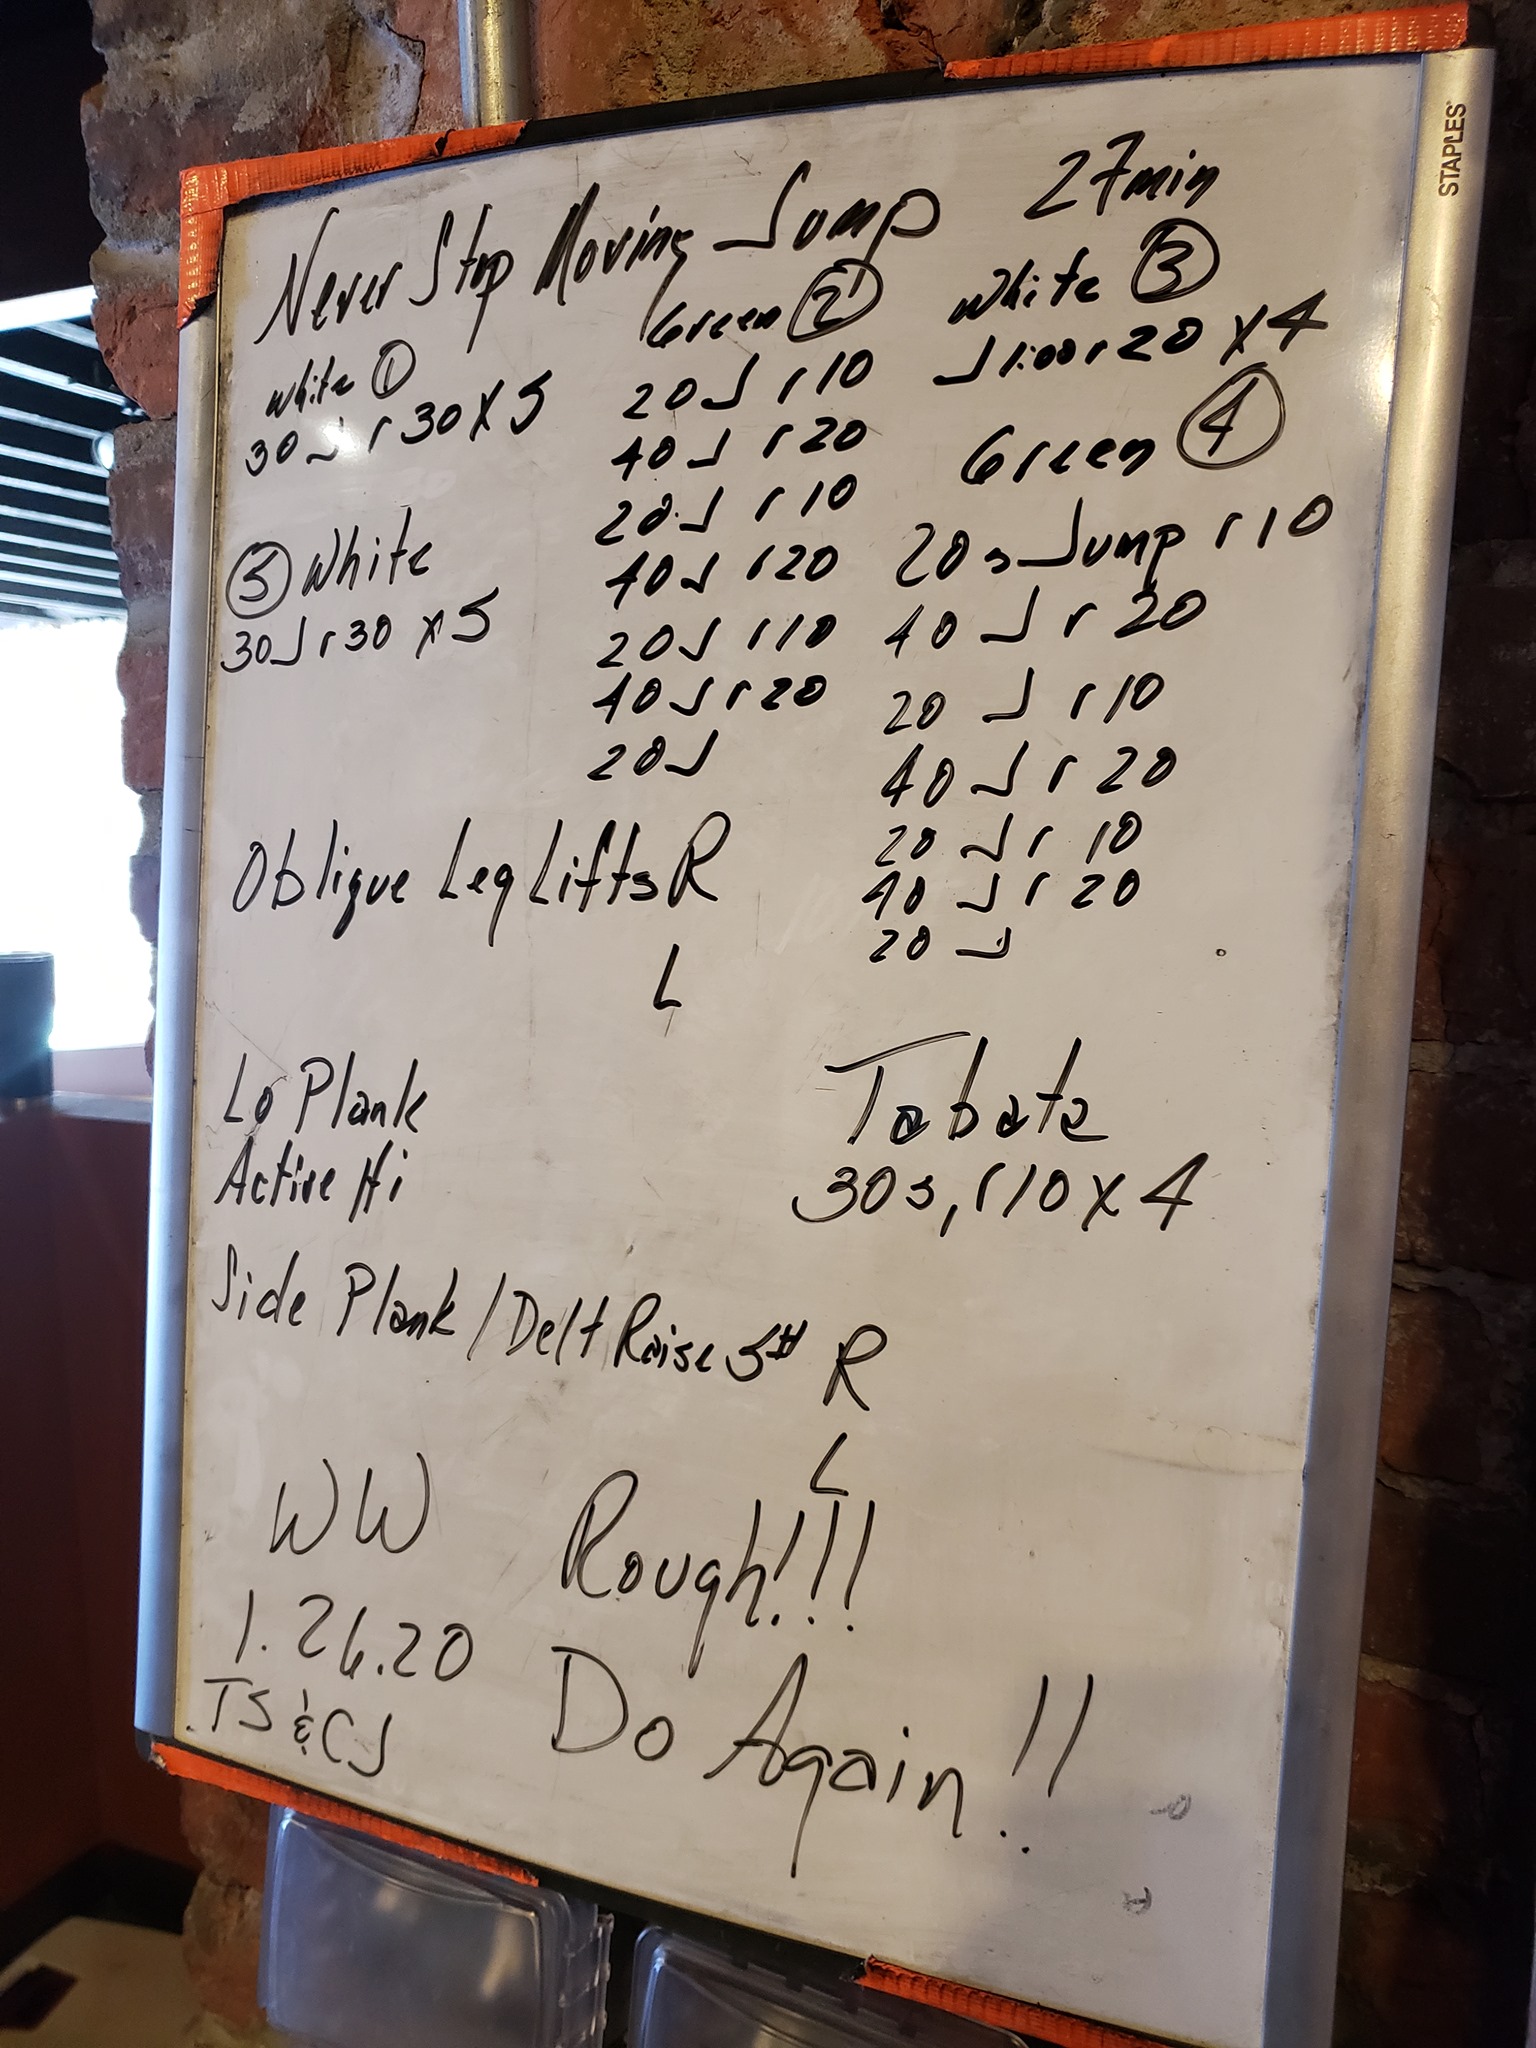 Never Stop Moving Jump 27min
White ①
30 J r 30 x 5
Green ②
20 J r 10
40 J r 20
20 J r 10
40 J r 20
20 J r 10
40 J r 20
20 J
White ③
J 1:00 r 20 x 4
Green ④
20s Jump r 10
40 J r 20
20 J r 10
40 J r 20
20 J r 10
40 J r 20
20 J
⑤ White
30 J r 30 x 5
Oblique Leg Lifts R
L
Lo Plank
Active Hi
Tabata
30s, r 10 x 4
Side Plank / Delt Raise 5# R
L
WW
1.26.20
TS & CJ
Rough!!!
Do Again!!
STAPLES